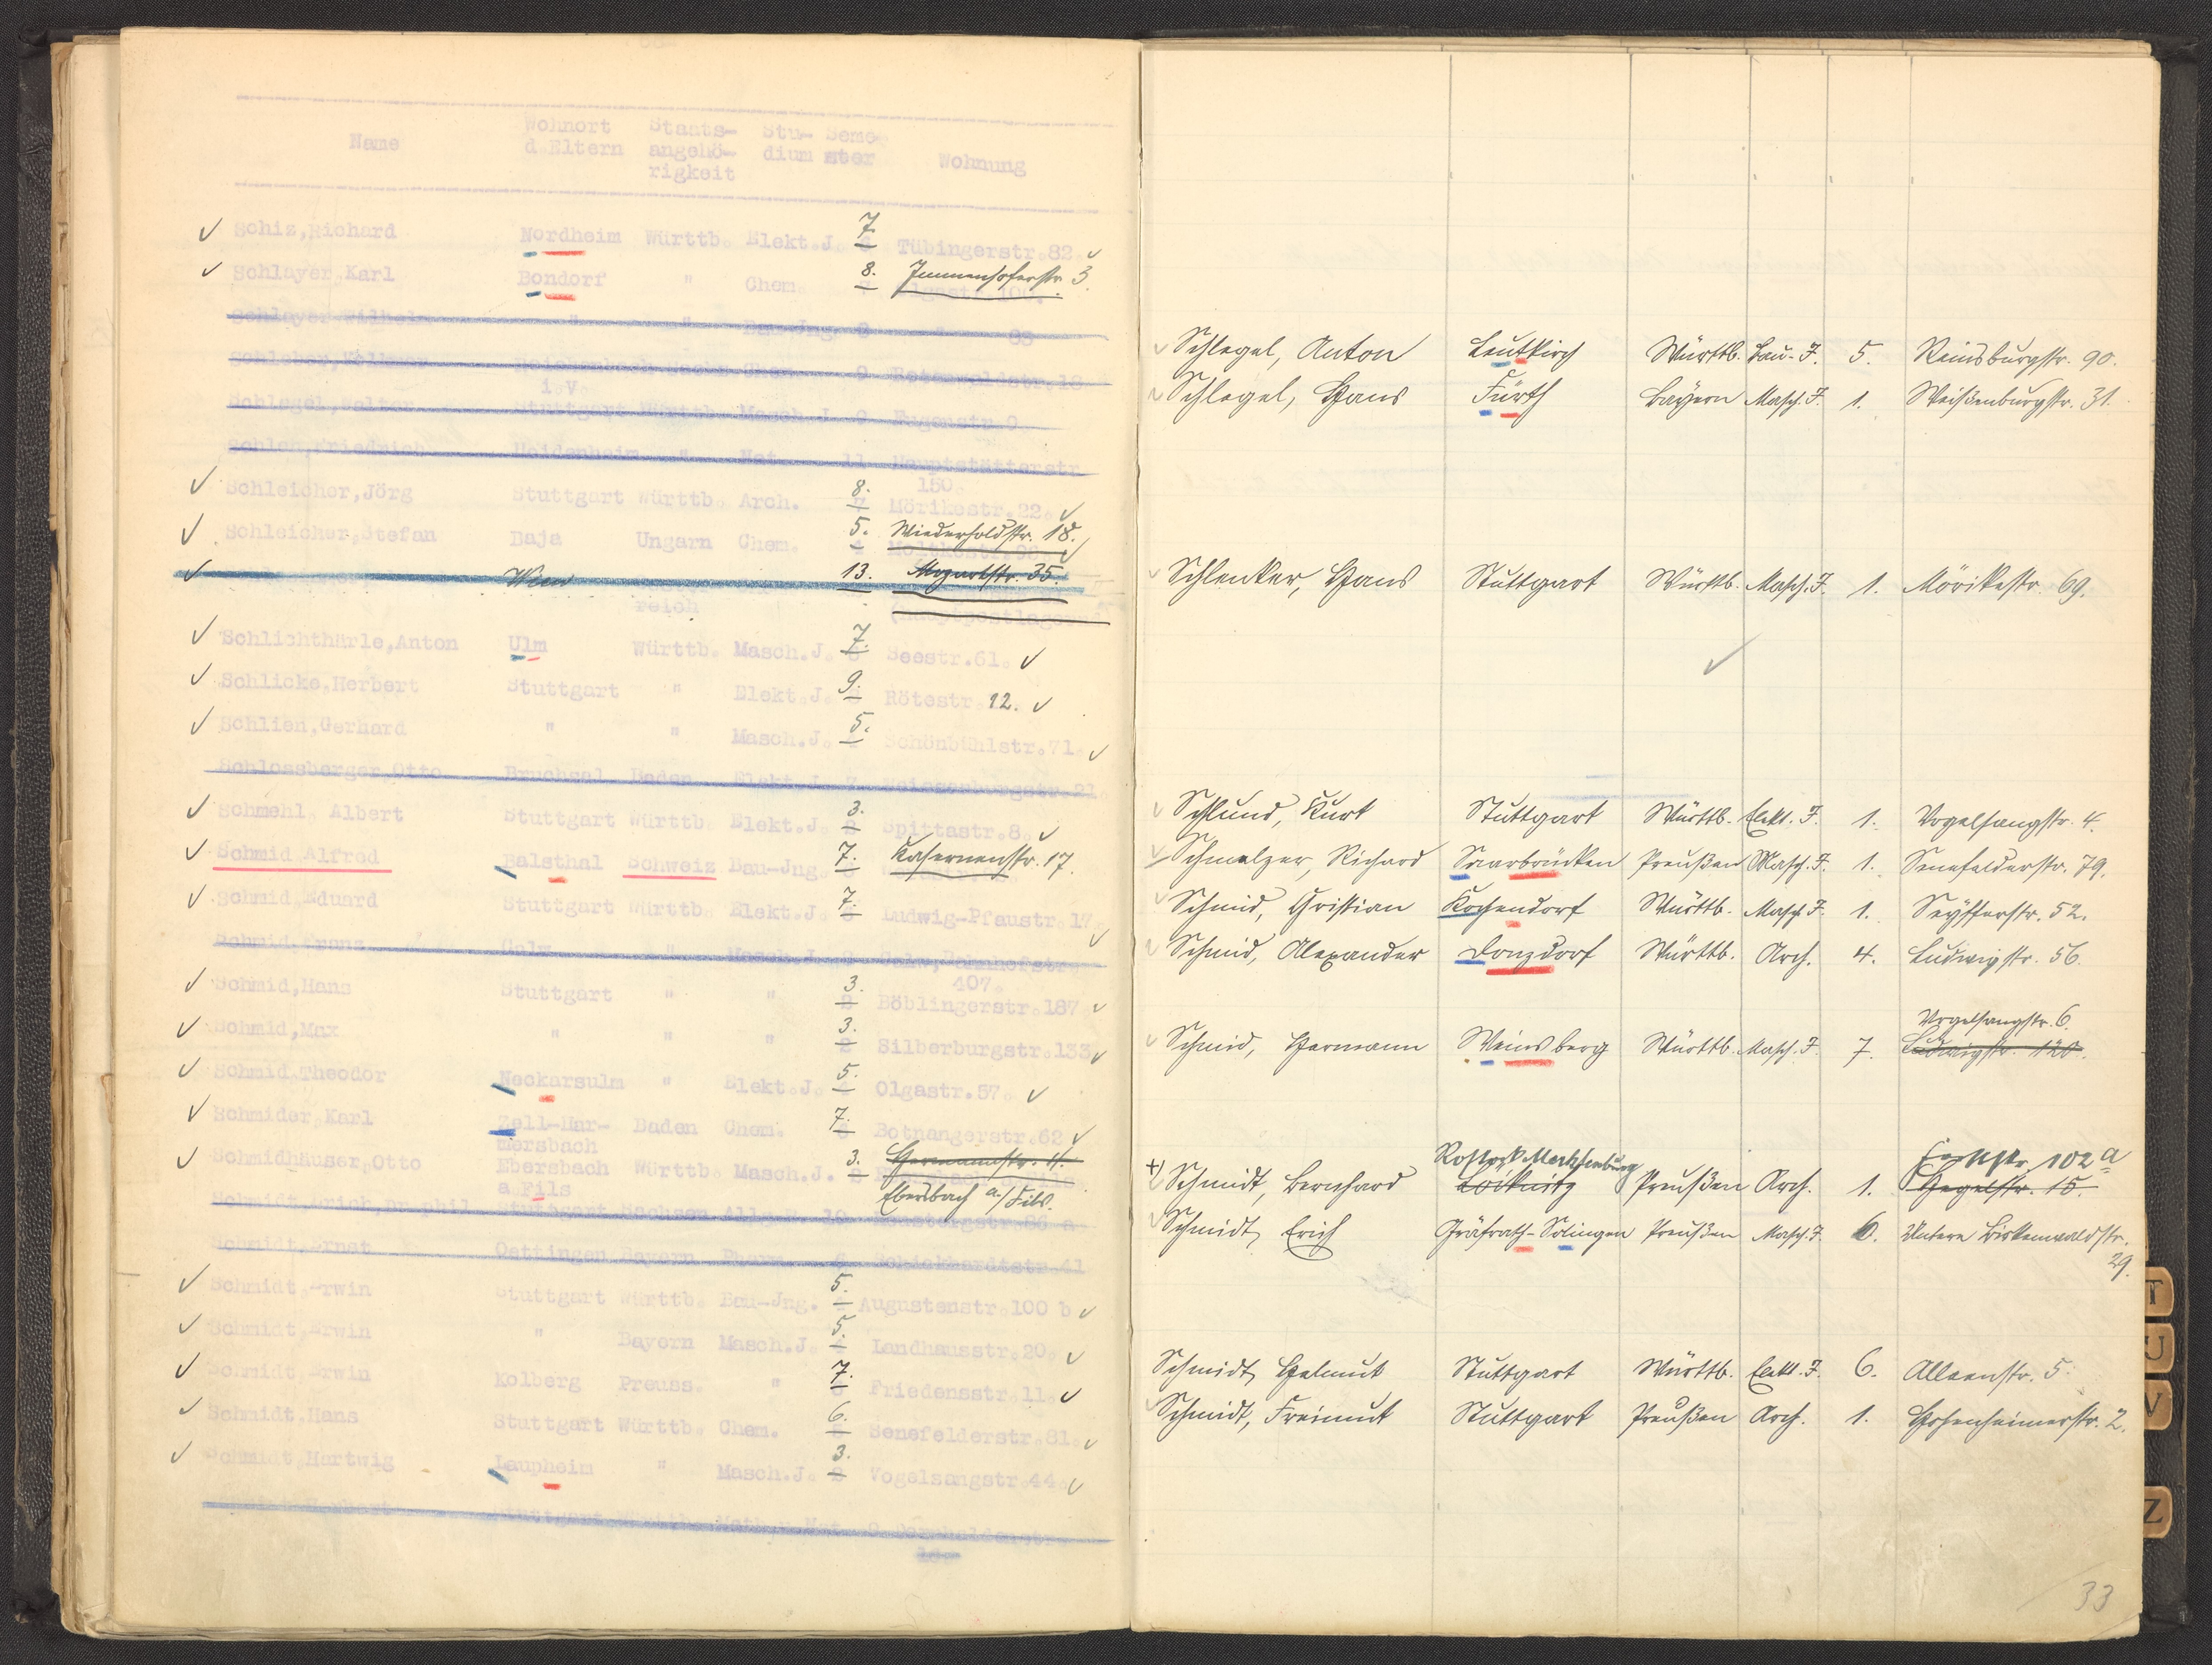 Name Wohnort d.Eltern Staats-angehö-rigkeit Stu-dium Seme-ster Wohnung
Schiz,Richard Nordheim Württb. Elekt.J. 7. Tübingerstr.82.
Schlayer,Karl Bondorf " Chem. 8. Immenhoferstr. 3.
Schlayer " " Bau-Jng. 8 " 83
Chem. 9
i.V.
Schlegel,Walter Stuttgart Württb. Masch.J. 9
Schlch,Friedrich Heidenheim " 11 Hauptstätterstr
150.
Schleicher,Jörg Stuttgart Württb. Arch. 8. Mörikestr.22.
Schleicher,Stefan Baja Ungarn Chem. 5. Wiederholdstr. 18.
Wien 13. Mozartstr. 35.
reich
Schlichthärle,Anton Ulm Württb. Masch.J. 7. Seestr.61.
Schlicke,Herbert Stuttgart " Elekt.J. 9. Rötestr 12.
Schlien,Gerhard " " Masch.J. 5. Schönbühlstr.71.
Schlossberger,Otto Bruchsal Baden Elekt.J. 7. 21.
Schmehl, Albert Stuttgart Württb. Elekt.J. 3. Spittastr.8.
Schmid Alfred Balsthal Schweiz Bau-Jng. 7. Kasernenstr. 17.
Schmid,Eduard Stuttgart Württb. Elekt.J. 7. Ludwig-Pfaustr.17.
Schmid,Franz Calw " Masch.J. Bahnhofstr.
407.
Schmid,Hans Stuttgart " " 3. Böblingerstr.187
Schmid,Max " " " 3. Silberburgstr.133
Schmid,Theodor Neckarsulm " Elekt.J. 5. Olgastr.57.
Schmider,Karl Zell-Har- Baden Chem. 7. Botnangerstr.62
mersbach
Schmidhäuser,Otto Ebersbach Württb. Masch.J. 3. Hermannstr. 4.
a.Fils Ebersbach a./Fils.
Schmidt,Erich,Dr.phil. Stuttgart Sachsen 10 86 a
Schmidt,Ernst Oettingen Bayern Pharm. 6 Schickhardtstr.41
Schmidt,Erwin Stuttgart Württb. Bau-Jng. 5. Augustenstr.100 b
Schmidt,Erwin " Bayern Masch.J. 5. Landhausstr.20.
Schmidt,Erwin Kolberg Preuss. " 7. Friedensstr.11.
Schmidt,Hans Stuttgart Württb. Chem. 6. Senefelderstr.81.
Schmidt,Hartwig Laupheim " Masch.J. 3. Vogelsangstr.44.
Stuttgart Württb.
Schlegel, Anton Leutkirch Württb. Bau-J. 5. Reinsburgstr. 90.
Schlegel, Hans Fürth Bayern Masch.J. 1. Weißenburgstr. 31.
Schlenker, Hans Stuttgart Württb. Masch.J. 1. Mörikestr. 69.
Schlund, Kurt Stuttgart Württb. Elekt. J. 1. Vogelsangstr. 4.
Schmelzer, Richard Saarbrücken Preußen Masch.J. 1. Senefelderstr. 79.
Schmid, Christian Kochendorf Württb. Masch.J. 1. Seyfferstr. 52.
Schmid, Alexander Donzdorf Württb. Arch. 4. Ludwigstr. 56.
Vogelsangstr. 6.
Schmid, Hermann Weinsberg Württb. Masch.J. 7. Ludwigstr. 120.
Rostock Mecklenburg 102 a
Schmidt, Bernhard Preußen Arch. 1. Hegelstr. 15.
Schmidt, Erich Gräfrath-Solingen Preußen Masch.J. 6. Untere Birkenwaldstr.
29.
Schmidt, Helmut Stuttgart Württb. Elekt.J. 6. Alleenstr. 5.
Schmidt, Freimut Stuttgart Preußen Arch. 1. Hohenheimerstr. 2.
33
T
U
V
Z